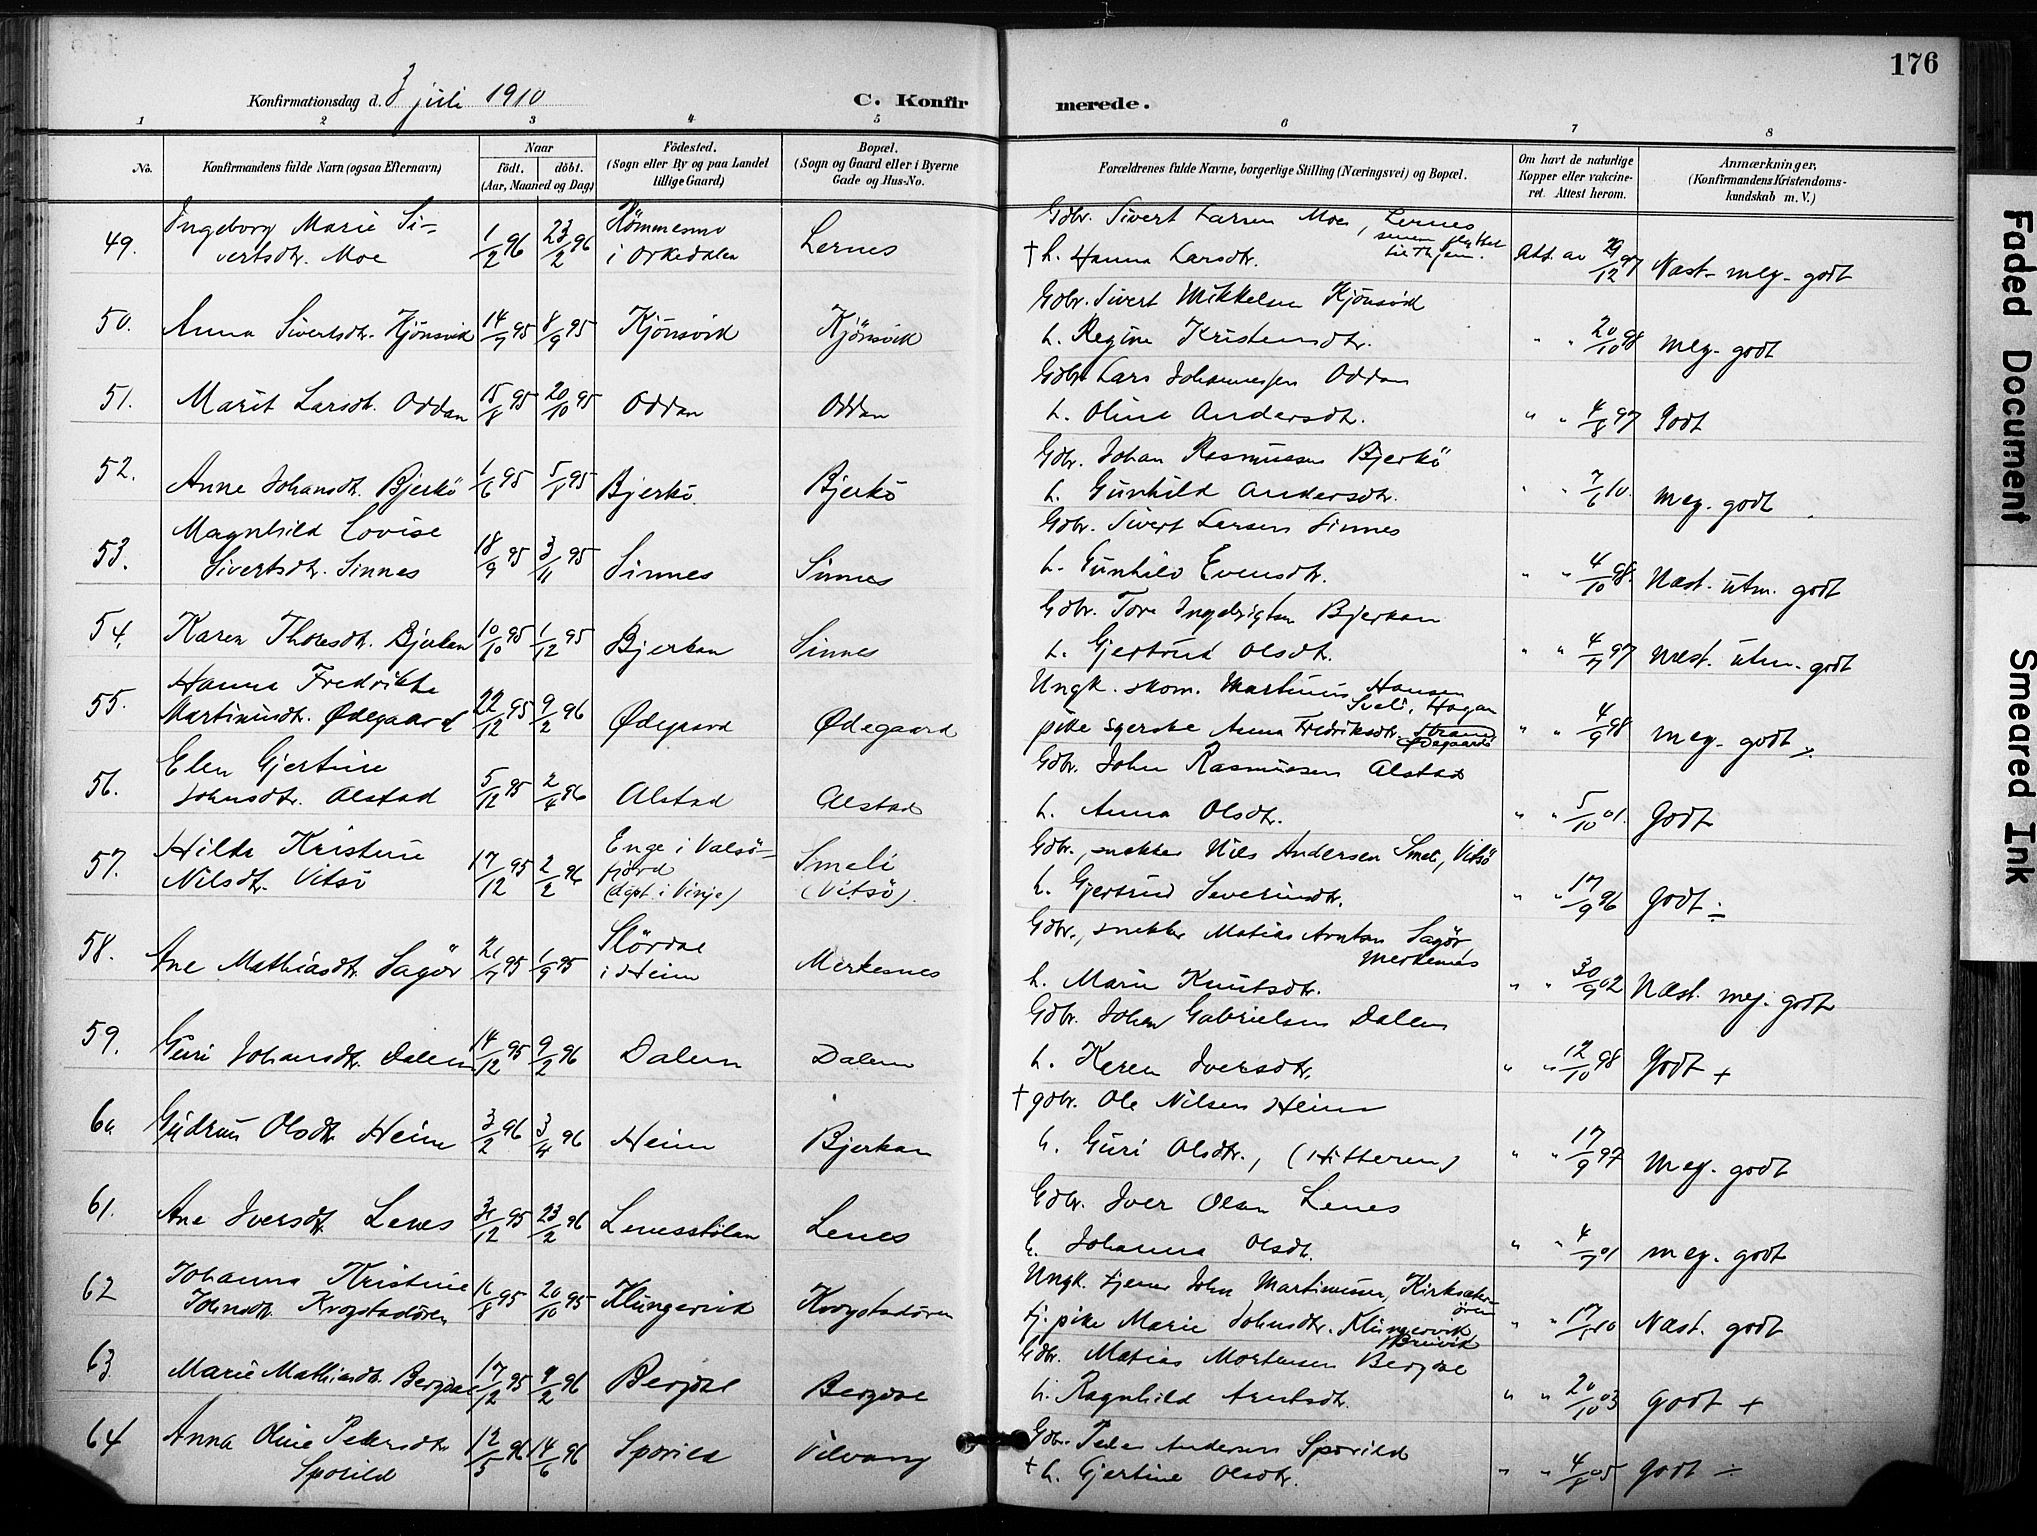 176
Konfirmationsdag d. 3 juli 1910
C. Konfirmerede.
1 2 3 4 5 6 7 8
No.
Konfirmandens fulde Navn (ogsaa Efternavn)
Naar
født. døbt.
(Aar, Maaned og Dag)
Fødested.
(Sogn eller By og paa Landet
tillige Gaard)
Bopæl.
(Sogn og Gaard eller i Byerne
Gade og Hus-No.
Forældrenes fulde Navne, borgerlige Stilling (Næringsvei) og Bopæl.
Om havt de naturlige
Kopper eller vakcine-
ret. Attest herom.
Anmærkninger,
(Konfirmandens Kristendoms-
kundskab m. V.)
49. Ingeborg Marie Si-
vertsdtr. Moe 1/2 96 23/2 96 i Orkedalen Lernes
Gdbr. Sivert Larsen Moe, Lernes
† h. Hanna Larsdtr. Att. av 12 97 Næst. meg. godt
50. Anna Sivertsdtr. Kjönsvik 14/7 95 8/9 95 Kjönsvik Kjönsvik
Gdbr. Sivert Mikkelsen Kjönsvik
h. Regine Kristensdtr. " " 20/10 98 meg. godt
51. Marit Larsdt. Oddan 15/8 95 20/10 95 Oddan Oddan
Gdbr. Lars Johannessen Oddan
h. Oline Andersdtr. " " 4/8 97 Godt
52. Anne Johansdt. Bjerkö 1/6 95 5/8 95 Bjerkö Bjerkö
Gdbr. Johan Rasmussen Bjerkö
h. Gunhild Andersdtr. " " 7/6 10. meg. godt
53. Magnhild Lovise
Sivertsdtr. Sinnes 18/9 95 3/11 95 Sinnes Sinnes
Gdbr. Sivert Larsen Sinnes
h. Gunhild Evensdtr. " " 4/10 98. Næst. utm. godt
54. Karen Thoresdt. Bjerkan 10/10 95 1/12 95 Bjerkan Sinnes
Gdbr. Tore Ingebrigtsen Bjerkan
h. Gjertrud Olsdt. " " 4/7 97 Næst. utm. godt
55. Hanna Fredrikke
Martinusdt. Ødegaard 22/12 95 9/2 96 Ødegaard Ødegaard
Ungk. skom. Martinus Hansen
Sveli, Hagan
pike syerske Anna Fredriksdtr. Strand
Ødegaard " " 4/9 98 meg. godt ÷
56. Elen Gjertine
Johnsdtr. Alstad 5/12 95 2/4 96 Alstad Alstad
Gdbr. John Rasmussen Alstad
h. Anna Olsdtr. " " 5/10 01. Godt
57. Hilda Kristine
Nilsdtr. Vitsö 17/12 95 2/2 96 Enge i Valsö-
fjord
(døpt i Vinje) Smeli
(Vitsö).
Gdbr., snekker Nils Andersen Smeli, Vitsö
h. Gjertrud Severinsdtr. " " 17/9 96 Godt ÷
58. Ane Mathiasdtr. Sagör 21/7 95 1/9 95 Stördal
i Heim Merkesnes
Gdbr., snekker Matias Arntsen Sagör,
Merkenes
h. Marie Knutsdtr. " " 30/9 02 Næst. meg. godt
59. Guri Johansdtr. Dalem 14/12 95 9/2 96 Dalem Dalem
Gdbr. Johan Gabrielsen Dalem
h. Karen Iversdtr. " " 12/10 98 Godt +
60 Gudrun Olsdtr Heim 3/2 96 3/4 96 Heim Bjerkan
† gdbr. Ole Nilsen Heim
h. Guri Olsdtr., (Hitteren) " " 17/9 97 Meg. godt
61. Ane Iversdtr. Lenes 31/12 95 23/2 96 Lenesstölan Lenes
Gdbr. Iver Olsen Lenes
h. Johanna Olsdt. " " 4/7 01 meg. godt
62 Johanna Kristine
Johnsdtr. Krogstadören 16/8 95 20/10 95 Klungervik Krogstadören
Ungk. tjener John Martinusen, Kirksæter-
ören
tj. pike Marie Johnsdtr. Klungervik
Brüvik " " 17/ 10 Næst. godt
63. Marie Mathiasdt. Bergdal 17/12 95 9/2 96 Bergdal Bergdal
Gdbr. Matias Mortensen Bergdal
h. Ragnhild Arntsdtr. " " 20/10 03 godt +
64 Anna Oline Pedersdtr
Sporild 12/5 96 14/6 96 Sporild Vilvang
Gdbr. Peder Andersen Sporild
† h. Gjertine Olsdtr. " " 4/8 05 godt ÷
Faded Document
Smeared Ink